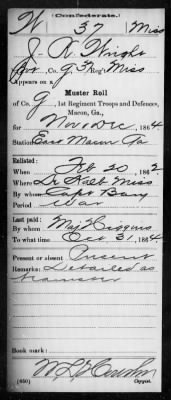 (Confederate.)
W 37 Miss
J. R. Wright
Co. G, 37 Reg. Miss
Appears on a
Muster Roll
of Co. G, 1st Regiment Troops and Defences,
Macon, Ga.,
for Nov & Dec, 1864
Station East Macon Ga
Enlisted:
When Feb 20, 1862
Where De Kalb Miss
By whom Capt
Period War
Last paid:
By whom Maj Higgins
To what time Oct 31, 1864
Present or absent Present
Remarks: Detailed as
teamster
Book mark:
(650)
Copyist.